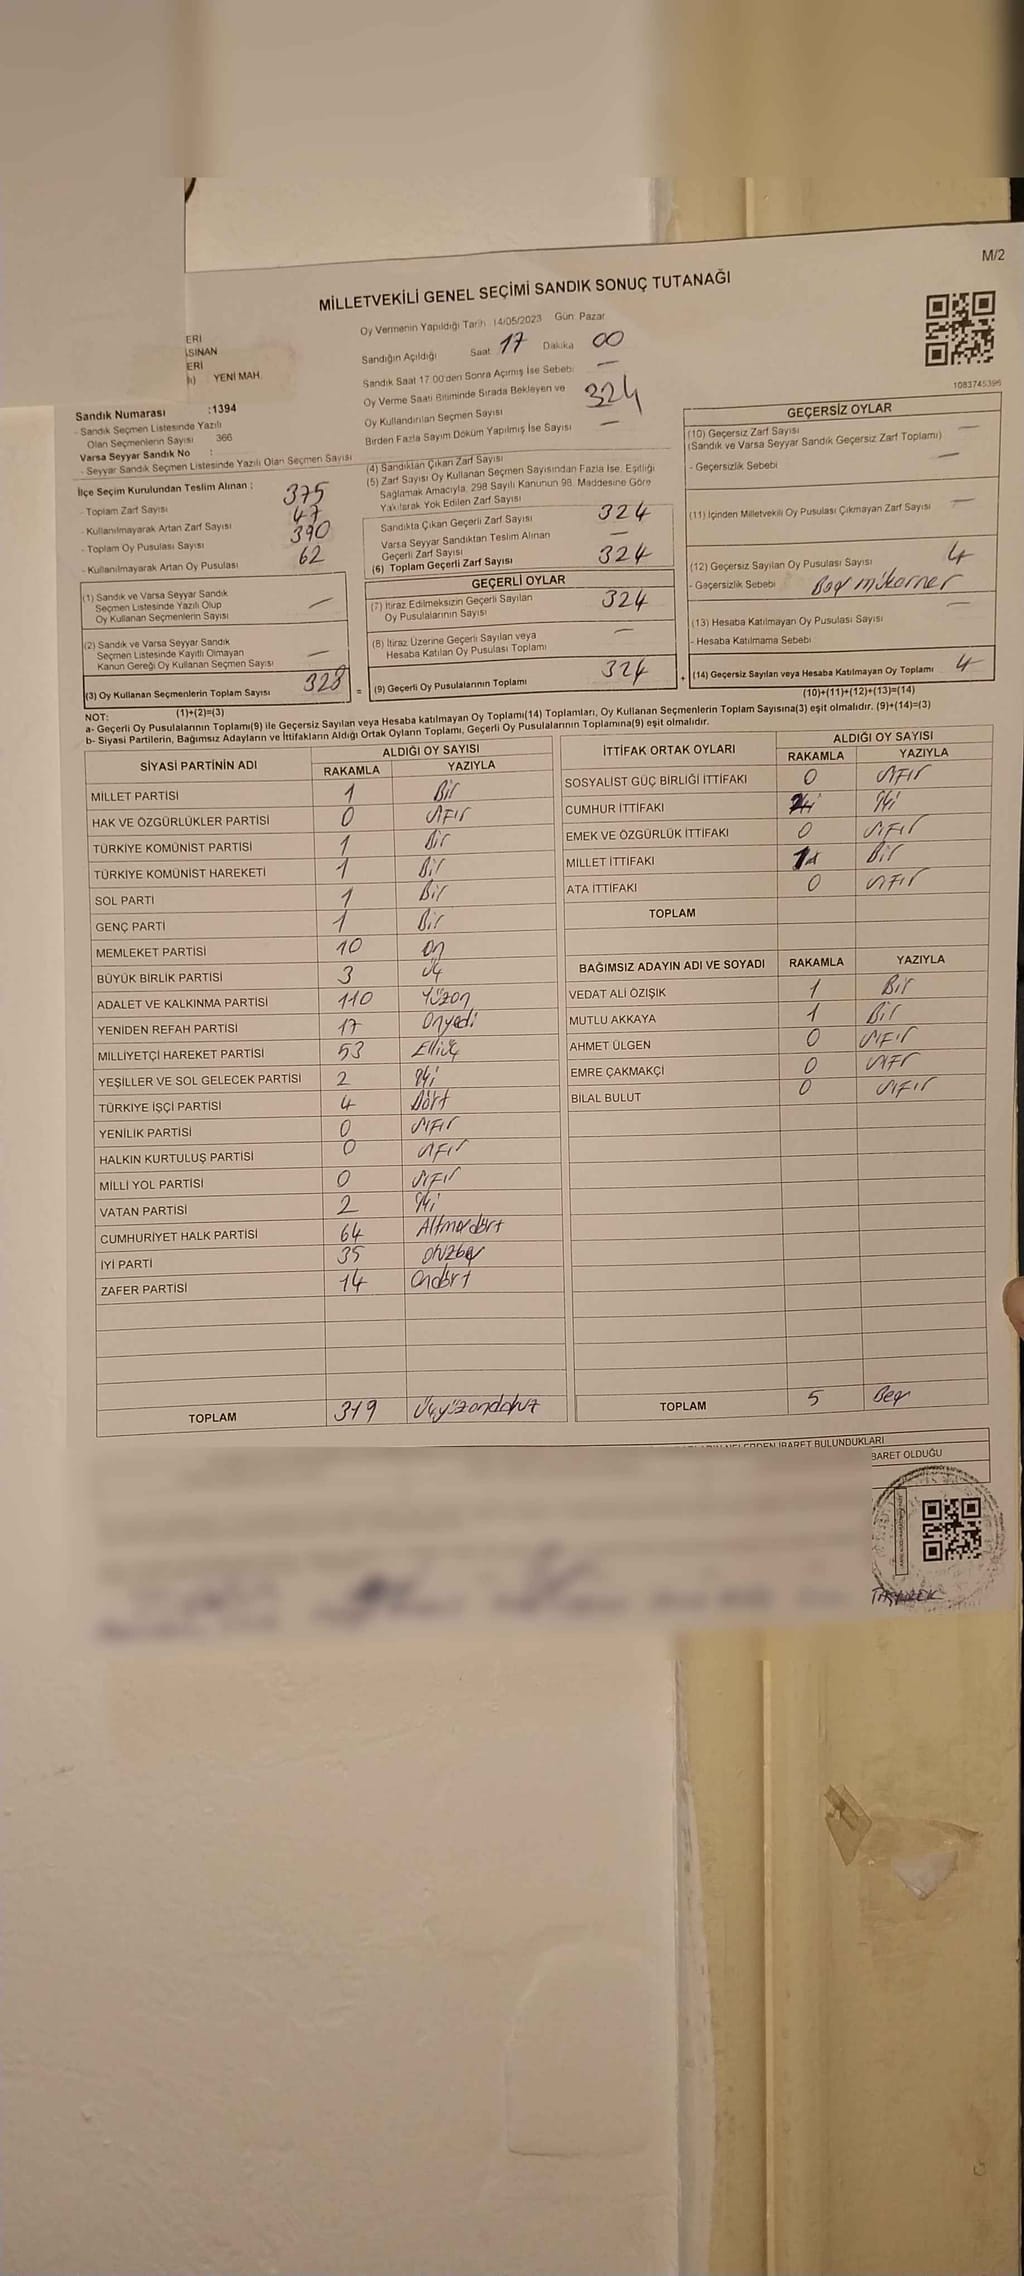 M/2
MİLLETVEKİLİ GENEL SEÇİMİ SANDIK SONUÇ TUTANAĞI
ERİ
ASINAN
ERİ
YENİ MAH.
Sandık Numarası :1394
- Sandık Seçmen Listesinde Yazılı
Olan Seçmenlerin Sayısı 366
Varsa Seyyar Sandık No :
- Seyyar Sandık Seçmen Listesinde Yazılı Olan Seçmen Sayısı
Oy Vermenin Yapıldığı Tarih 14/05/2023 Gün Pazar
Sandığın Açıldığı Saat 17 Dakika 00
Sandık Saat 17:00'den Sonra Açımış İse Sebebi —
Oy Verme Saati Bitiminde Sırada Bekleyen ve
Oy Kullandırılan Seçmen Sayısı 324
Birden Fazla Sayım Döküm Yapılmış İse Sayısı —
1083745396
İlçe Seçim Kurulundan Teslim Alınan :
- Toplam Zarf Sayısı 375
- Kullanılmayarak Artan Zarf Sayısı 47
- Toplam Oy Pusulası Sayısı 390
- Kullanılmayarak Artan Oy Pusulası 62
(1) Sandık ve Varsa Seyyar Sandık
Seçmen Listesinde Yazılı Olup
Oy Kullanan Seçmenlerin Sayısı —
(2) Sandık ve Varsa Seyyar Sandık
Seçmen Listesinde Kayıtlı Olmayan
Kanun Gereği Oy Kullanan Seçmen Sayısı —
(3) Oy Kullanan Seçmenlerin Toplam Sayısı 328
(1)+(2)=(3)
(4) Sandıktan Çıkan Zarf Sayısı
(5) Zarf Sayısı Oy Kullanan Seçmen Sayısından Fazla İse, Eşitliği
Sağlamak Amacıyla, 298 Sayılı Kanunun 98. Maddesine Göre
Yakılarak Yok Edilen Zarf Sayısı
Sandıkta Çıkan Geçerli Zarf Sayısı 324
Varsa Seyyar Sandıktan Teslim Alınan
Geçerli Zarf Sayısı —
(6) Toplam Geçerli Zarf Sayısı 324
GEÇERLİ OYLAR
(7) İtiraz Edilmeksizin Geçerli Sayılan
Oy Pusulalarının Sayısı 324
(8) İtiraz Üzerine Geçerli Sayılan veya
Hesaba Katılan Oy Pusulası Toplamı —
= (9) Geçerli Oy Pusulalarının Toplamı 324
GEÇERSİZ OYLAR
(10) Geçersiz Zarf Sayısı —
(Sandık ve Varsa Seyyar Sandık Geçersiz Zarf Toplamı)
- Geçersizlik Sebebi —
(11) İçinden Milletvekili Oy Pusulası Çıkmayan Zarf Sayısı —
(12) Geçersiz Sayılan Oy Pusulası Sayısı 4
- Geçersizlik Sebebi
(13) Hesaba Katılmayan Oy Pusulası Sayısı —
- Hesaba Katılmama Sebebi
+ (14) Geçersiz Sayılan veya Hesaba Katılmayan Oy Toplamı 4
(10)+(11)+(12)+(13)=(14)
NOT:
a- Geçerli Oy Pusulalarının Toplamı(9) ile Geçersiz Sayılan veya Hesaba katılmayan Oy Toplamı(14) Toplamları, Oy Kullanan Seçmenlerin Toplam Sayısına(3) eşit olmalıdır. (9)+(14)=(3)
b- Siyasi Partilerin, Bağımsız Adayların ve İttifakların Aldığı Ortak Oyların Toplamı, Geçerli Oy Pusulalarının Toplamına(9) eşit olmalıdır.
SİYASİ PARTİNİN ADI ALDIĞI OY SAYISI
RAKAMLA YAZIYLA
MİLLET PARTİSİ 1 Bir
HAK VE ÖZGÜRLÜKLER PARTİSİ 0 sıfır
TÜRKİYE KOMÜNİST PARTİSİ 1 Bir
TÜRKİYE KOMÜNİST HAREKETİ 1 Bir
SOL PARTİ 1 Bir
GENÇ PARTİ 1 Bir
MEMLEKET PARTİSİ 10 on
BÜYÜK BİRLİK PARTİSİ 3 üç
ADALET VE KALKINMA PARTİSİ 110 Yüzon
YENİDEN REFAH PARTİSİ 17 Onyedi
MİLLİYETÇİ HAREKET PARTİSİ 53 Elliüç
YEŞİLLER VE SOL GELECEK PARTİSİ 2 iki
TÜRKİYE İŞÇİ PARTİSİ 4 Dört
YENİLİK PARTİSİ 0 sıfır
HALKIN KURTULUŞ PARTİSİ 0 sıfır
MİLLİ YOL PARTİSİ 0 sıfır
VATAN PARTİSİ 2 iki
CUMHURİYET HALK PARTİSİ 64 Altmışdört
İYİ PARTİ 35 otuzbeş
ZAFER PARTİSİ 14 Ondört
TOPLAM 319 Üçyüzondokuz
İTTİFAK ORTAK OYLARI ALDIĞI OY SAYISI
RAKAMLA YAZIYLA
SOSYALİST GÜÇ BİRLİĞİ İTTİFAKI 0 sıfır
CUMHUR İTTİFAKI 2 iki
EMEK VE ÖZGÜRLÜK İTTİFAKI 0 sıfır
MİLLET İTTİFAKI 1 Bir
ATA İTTİFAKI 0 sıfır
TOPLAM
BAĞIMSIZ ADAYIN ADI VE SOYADI RAKAMLA YAZIYLA
VEDAT ALİ ÖZIŞIK 1 Bir
MUTLU AKKAYA 1 Bir
AHMET ÜLGEN 0 sıfır
EMRE ÇAKMAKÇI 0 sıfır
BİLAL BULUT 0 sıfır
TOPLAM 5 Beş
BULUNDUKLARI
BARET OLDUĞU